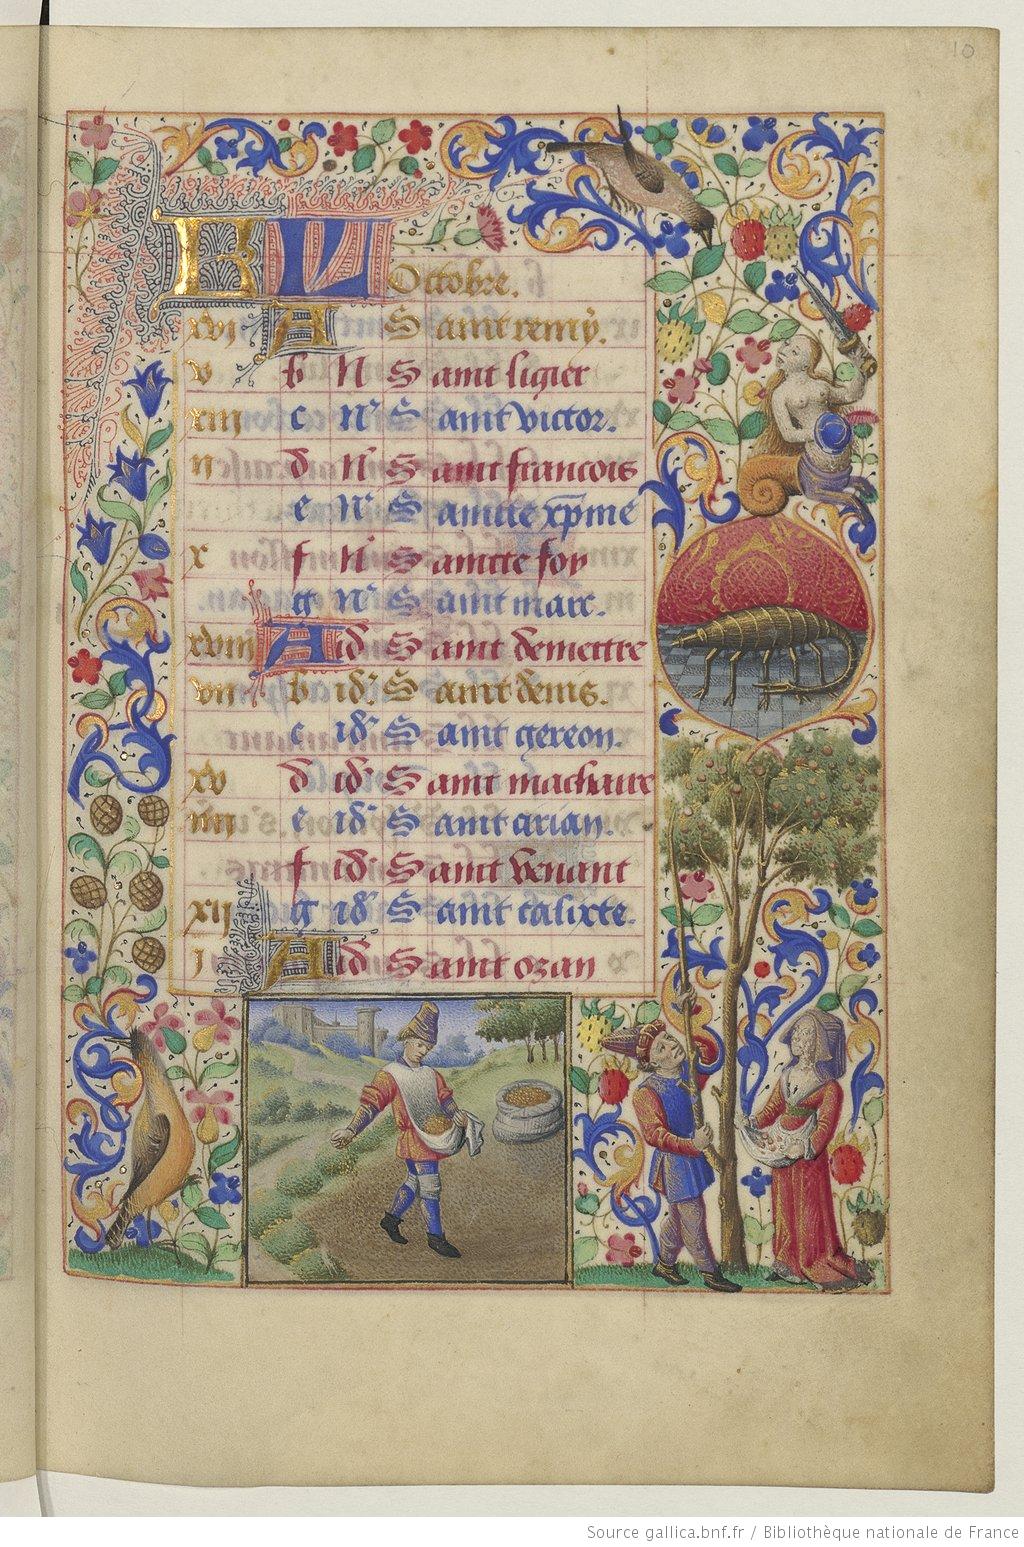 10
KL Octobre.
xvi A Saint remy.
v b N Saint ligier
xiii c Nr Saint victor.
ii d Nr Saint francois
e Nr Saincte xp̄ine
x f Nr Saincte foy
g Nr Saint marc.
xviii A id Saint demettre
vii b id Saint denis.
c id Saint gereon.
xv d id Saint machaire
iiii e id Saint arian.
f id Saint venant
xii g id Saint calixte.
i A id Saint ozan
Source gallica.bnf.fr / Bibliothèque nationale de France